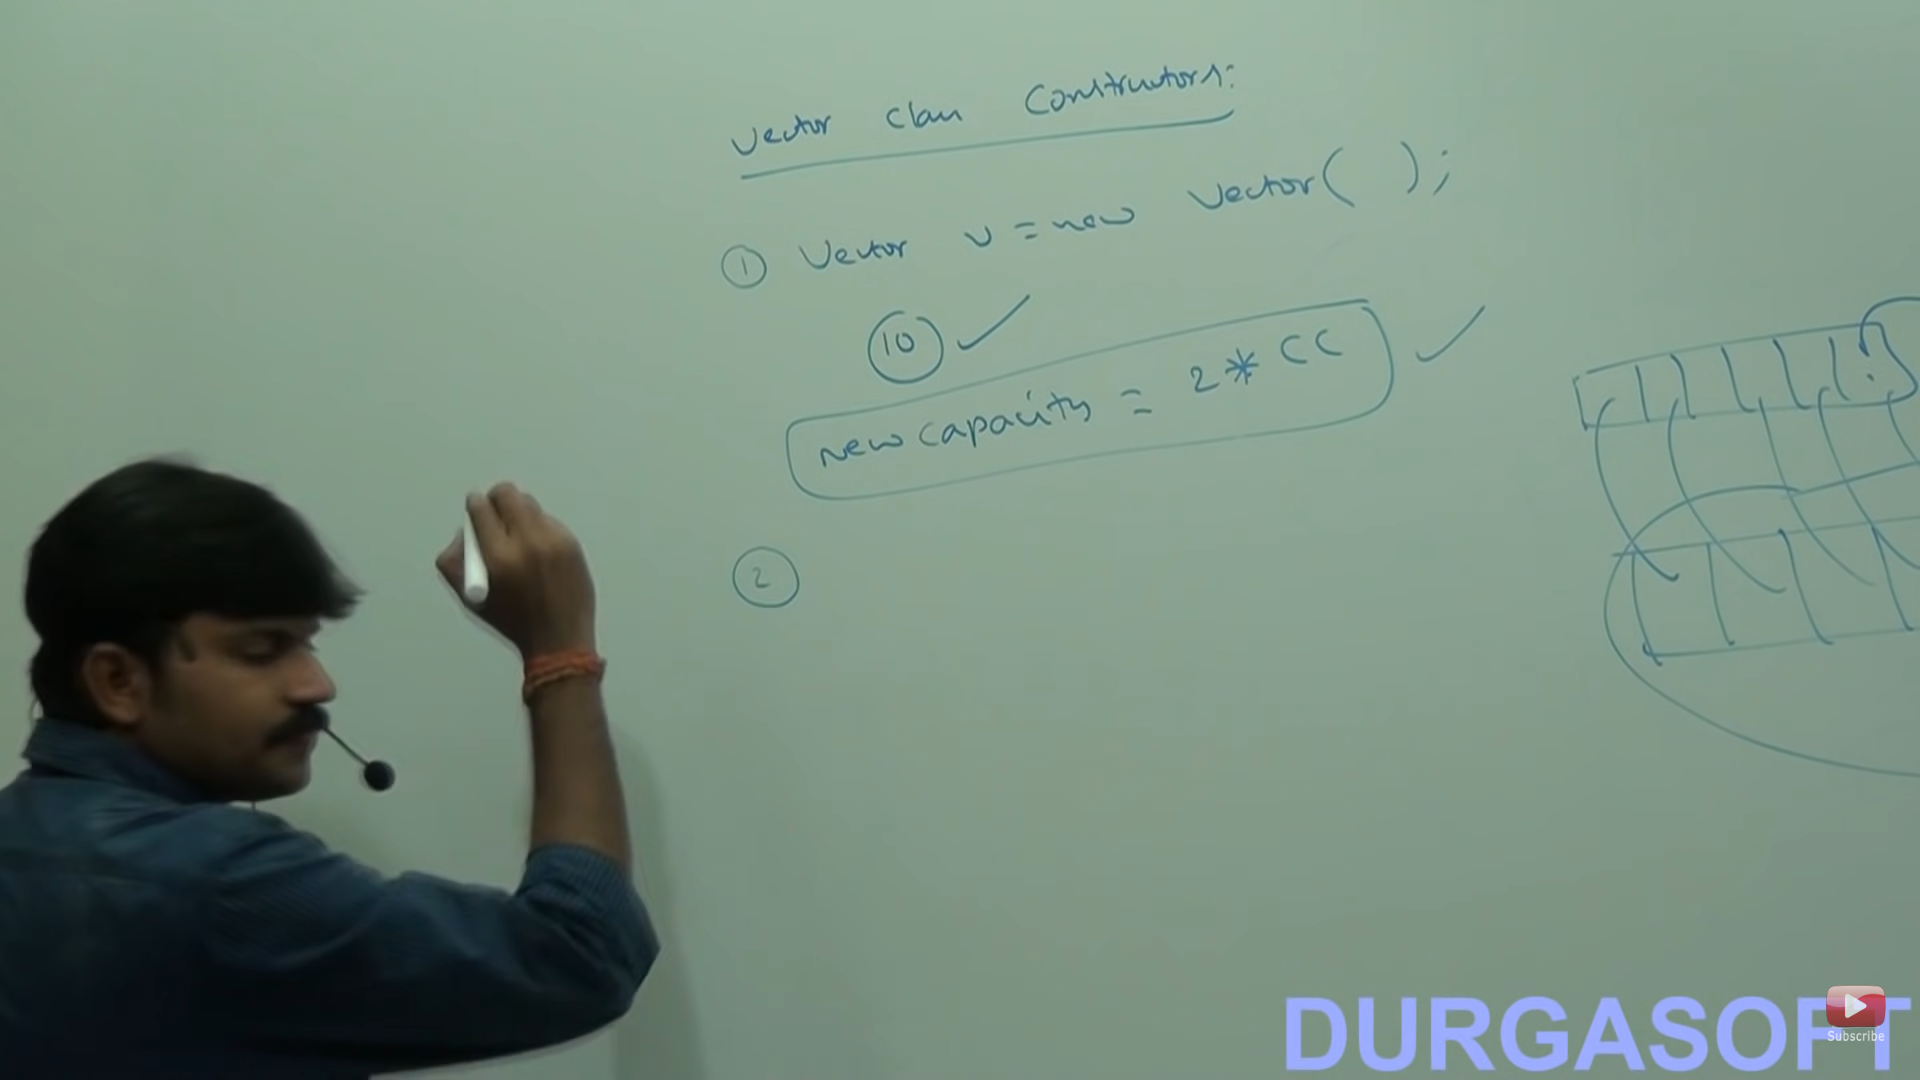 Vector Class Constructors:
① Vector v = new Vector( );
10
New capacity = 2 * CC
②
DURGASOFT
Subscribe